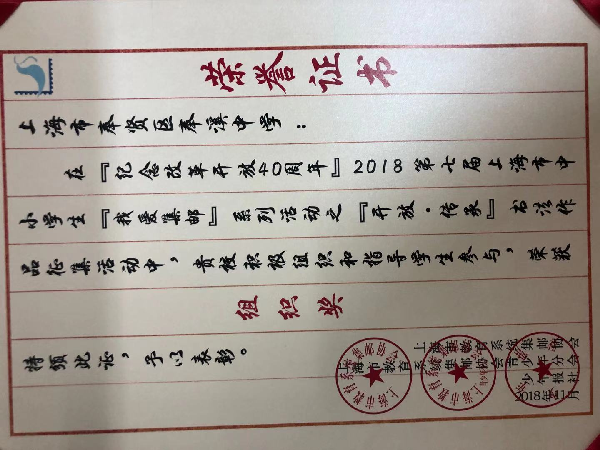 荣誉证书
上海市奉贤区奉溪中学：
在『纪念改革开放40周年』2018第七届上海市中
小学生『我爱集邮』系列活动之『开放·传承』书法作
品征集活动中，贵校积极组织和指导学生参与，荣获
组织奖
特颁此证，予以表彰。
2018年11月